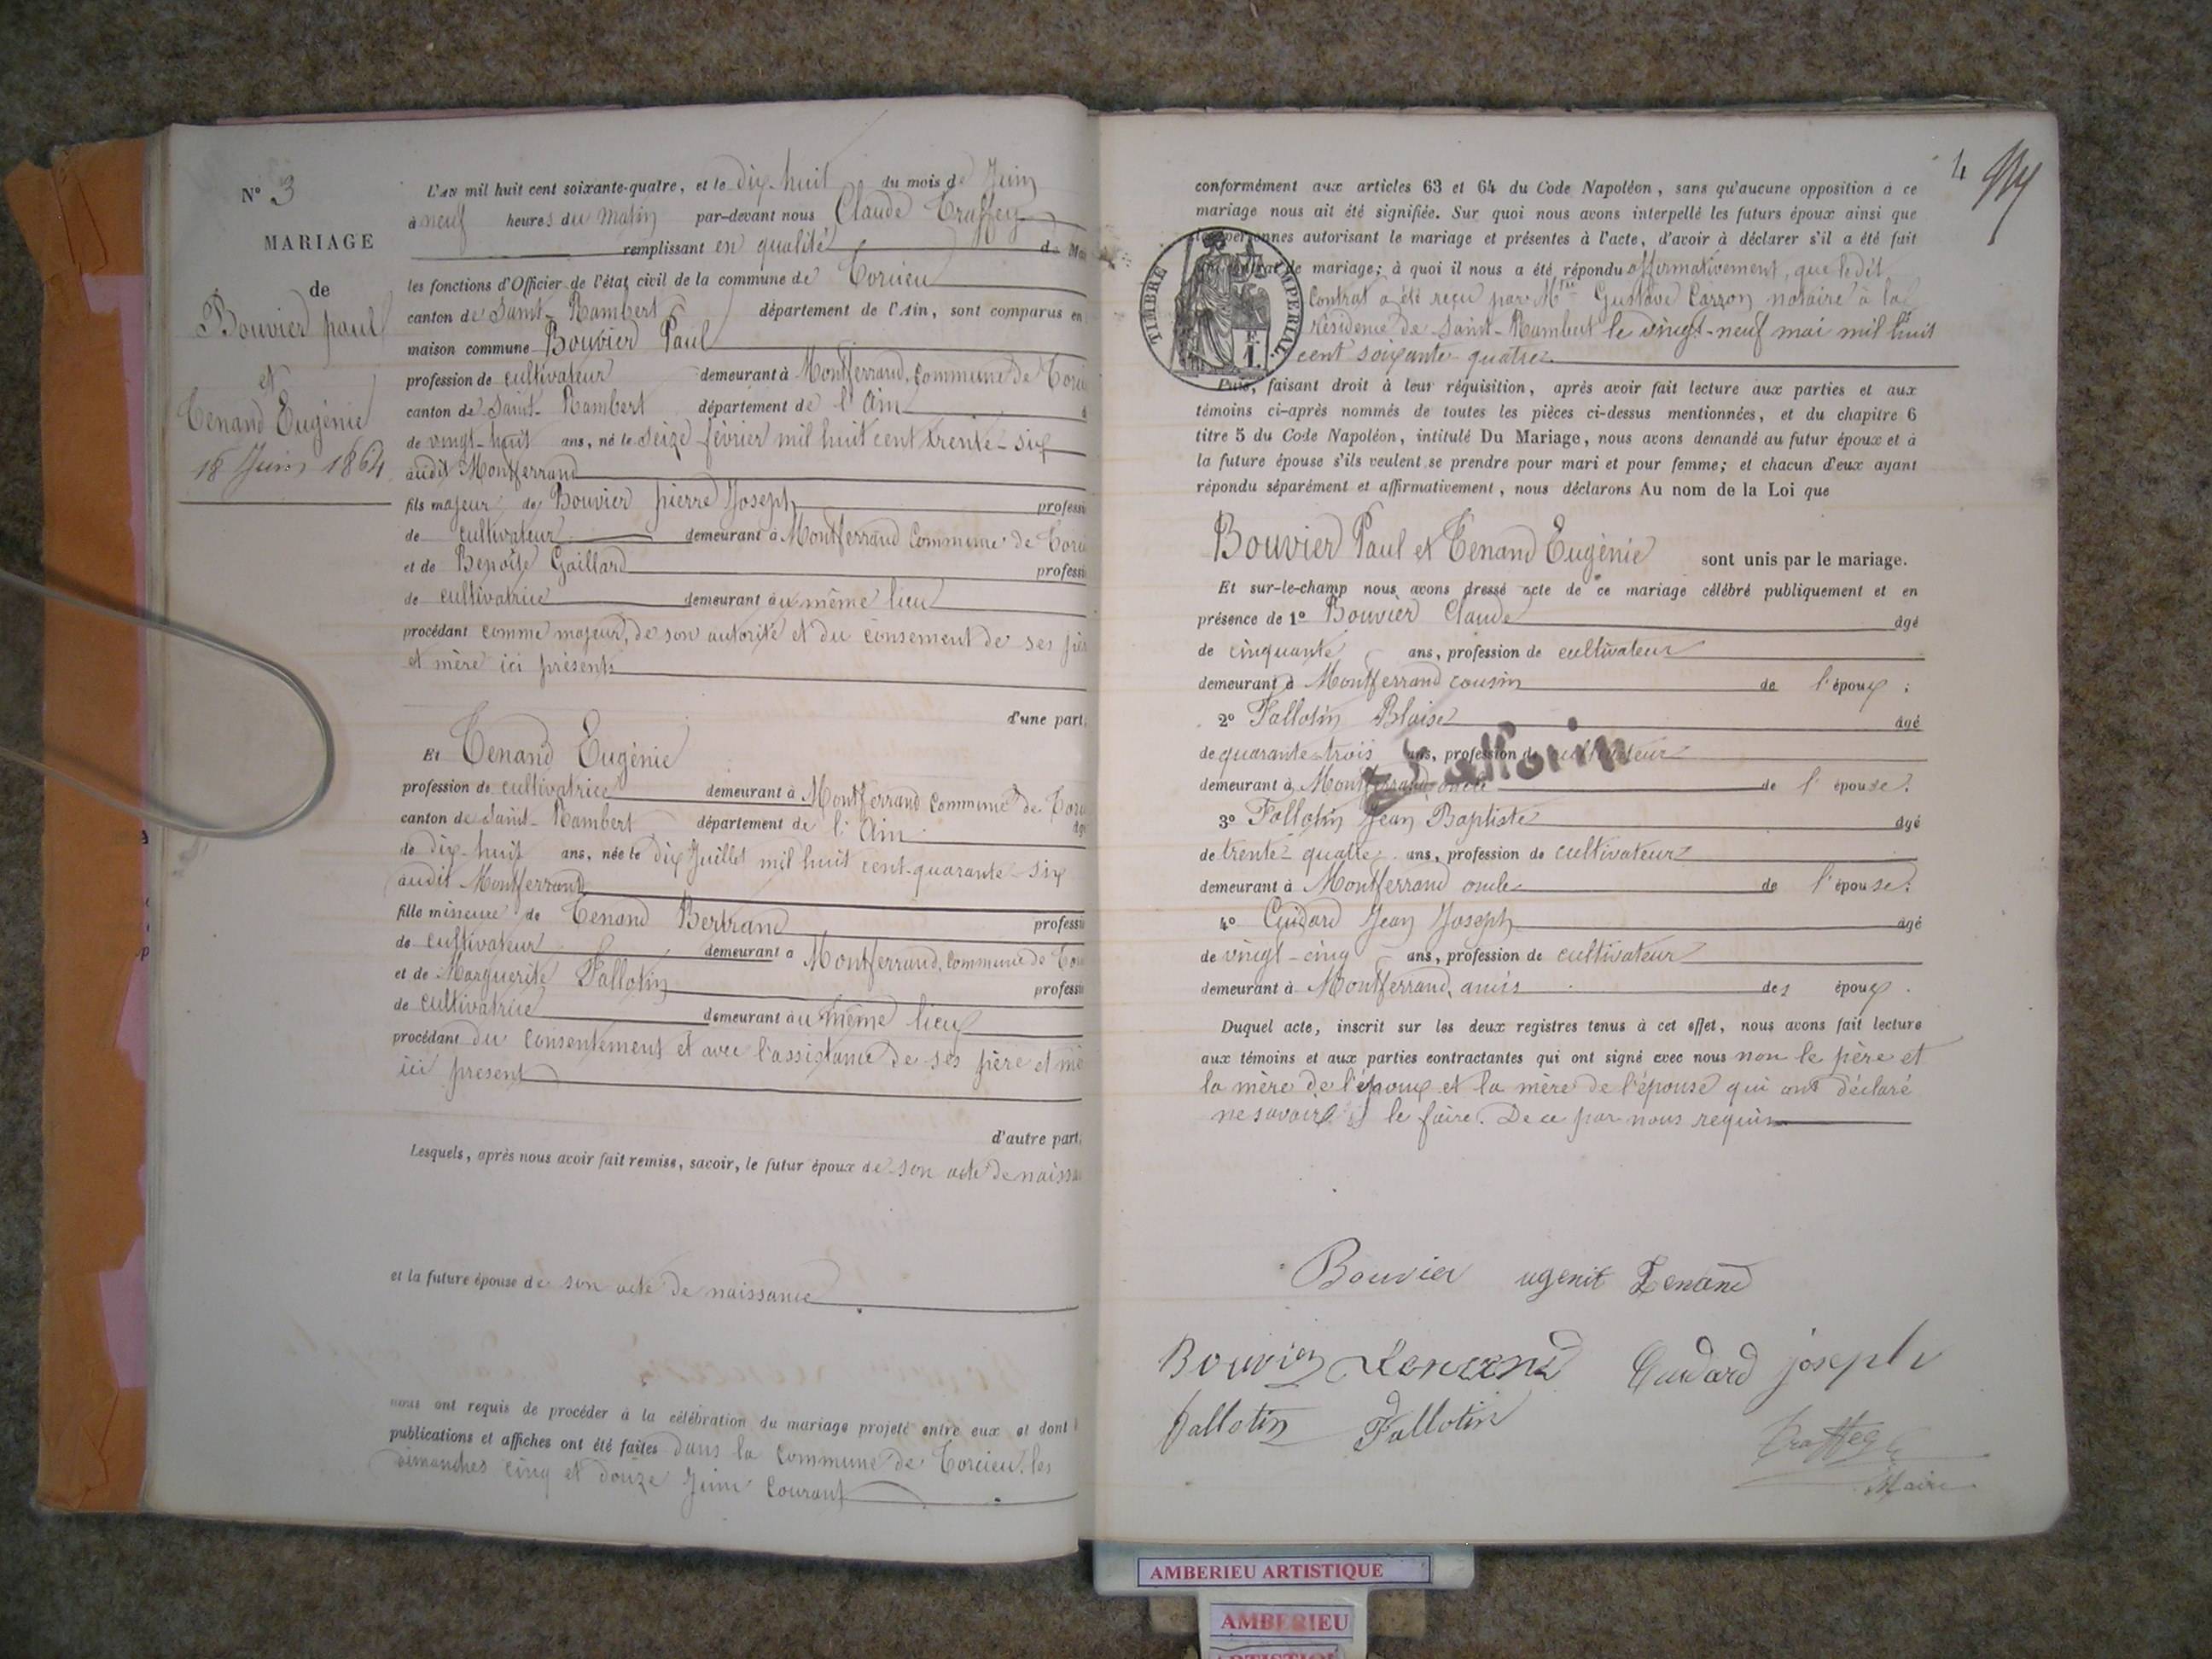 N° 3
MARIAGE
de
Bouvier paul
et
Tenand Eugénie
18 Juin 1864
L'AN mil huit cent soixante-quatre, et le dix-huit du mois de Juin
à neuf heures du matin par-devant nous Claude Traffey
remplissant en qualité de
les fonctions d'Officier de l'état civil de la commune de Torcieu
canton de Saint-Rambert département de l'Ain, sont comparus en
maison commune Bouvier Paul
profession de cultivateur demeurant à Montferrand, commune de
canton de Saint-Rambert département de l'Ain
de vingt-huit ans, né le seize février mil huit cent trente-six
audit Montferrand
fils majeur de Bouvier pierre Joseph
de cultivateur demeurant à Montferrand Commune de
et de Benoîte Gaillard
de cultivatrice demeurant au même lieu
procédant comme majeur, de son autorité et du consement de ses
et mère ici présents
d'une part,
Et Tenand Eugénie
profession de cultivatrice demeurant à Montferrand Commune de
canton de Saint-Rambert département de l'Ain
de dix-huit ans, née le dix Juillet mil huit cent-quarante-six
audit Montferrand
fille mineure de Tenand Bertrand
de cultivateur demeurant à Montferrand, commune de
et de Marguerite Fallotin
de cultivatrice demeurant au même lieu
procédant du consentement et avec l'assistance de ses père et
ici present
d'autre part,
Lesquels, après nous avoir fait remise, savoir, le futur époux de son acte de
et la future épouse de son acte de naissance
nous ont requis de procéder à la célébration du mariage projeté entre eux et dont
publications et affiches ont été faites dans la commune de Torcieu, les
dimanches cinq et douze Juin courant
4
conformément aux articles 63 et 64 du Code Napoléon, sans qu'aucune opposition à ce
mariage nous ait été signifiée. Sur quoi nous avons interpellé les futurs époux ainsi que
autorisant le mariage et présentes à l'acte, d'avoir à déclarer s'il a été fait
de mariage; à quoi il nous a été répondu affirmativement, que ledit
TIMBRE IMPERIAL
Contrat a été reçu par Gustave Carron notaire à la
résidence de Saint-Rambert le vingt-neuf mai mil huit
cent soixante-quatre
Puis, faisant droit à leur réquisition, après avoir fait lecture aux parties et aux
témoins ci-après nommés de toutes les pièces ci-dessus mentionnées, et du chapitre 6
titre 5 du Code Napoléon, intitulé Du Mariage, nous avons demandé au futur époux et à
la future épouse s'ils veulent se prendre pour mari et pour femme; et chacun d'eux ayant
répondu séparément et affirmativement, nous déclarons Au nom de la Loi que
Bouvier Paul et Tenand Eugénie sont unis par le mariage.
Et sur-le-champ nous avons dressé acte de ce mariage célébré publiquement et en
présence de 1° Bouvier Claude âgé
de cinquante ans, profession de cultivateur
demeurant à Montferrand cousin de l'époux;
2° Fallotin Blaise âgé
de quarante-trois ans, profession de cultivateur
demeurant à Montferrand oncle de l'épouse.
3° Fallotin Jean Baptiste âgé
de trente-quatre ans, profession de cultivateur
demeurant à Montferrand oncle de l'épouse.
4° Guidard Jean Joseph âgé
de vingt-cinq ans, profession de cultivateur
demeurant à Montferrand, amis des époux.
Duquel acte, inscrit sur les deux registres tenus à cet effet, nous avons fait lecture
aux témoins et aux parties contractantes qui ont signé avec nous non le père et
la mère de l'époux et la mère de l'épouse qui ont déclaré
ne savoir le faire. De ce par nous requis
Bouvier ugenit Tenand
Bouvier Tenand joseph
Fallotin Fallotin
Traffey
Maire
AMBERIEU ARTISTIQUE
AMBERIEU
ARTISTIQUE